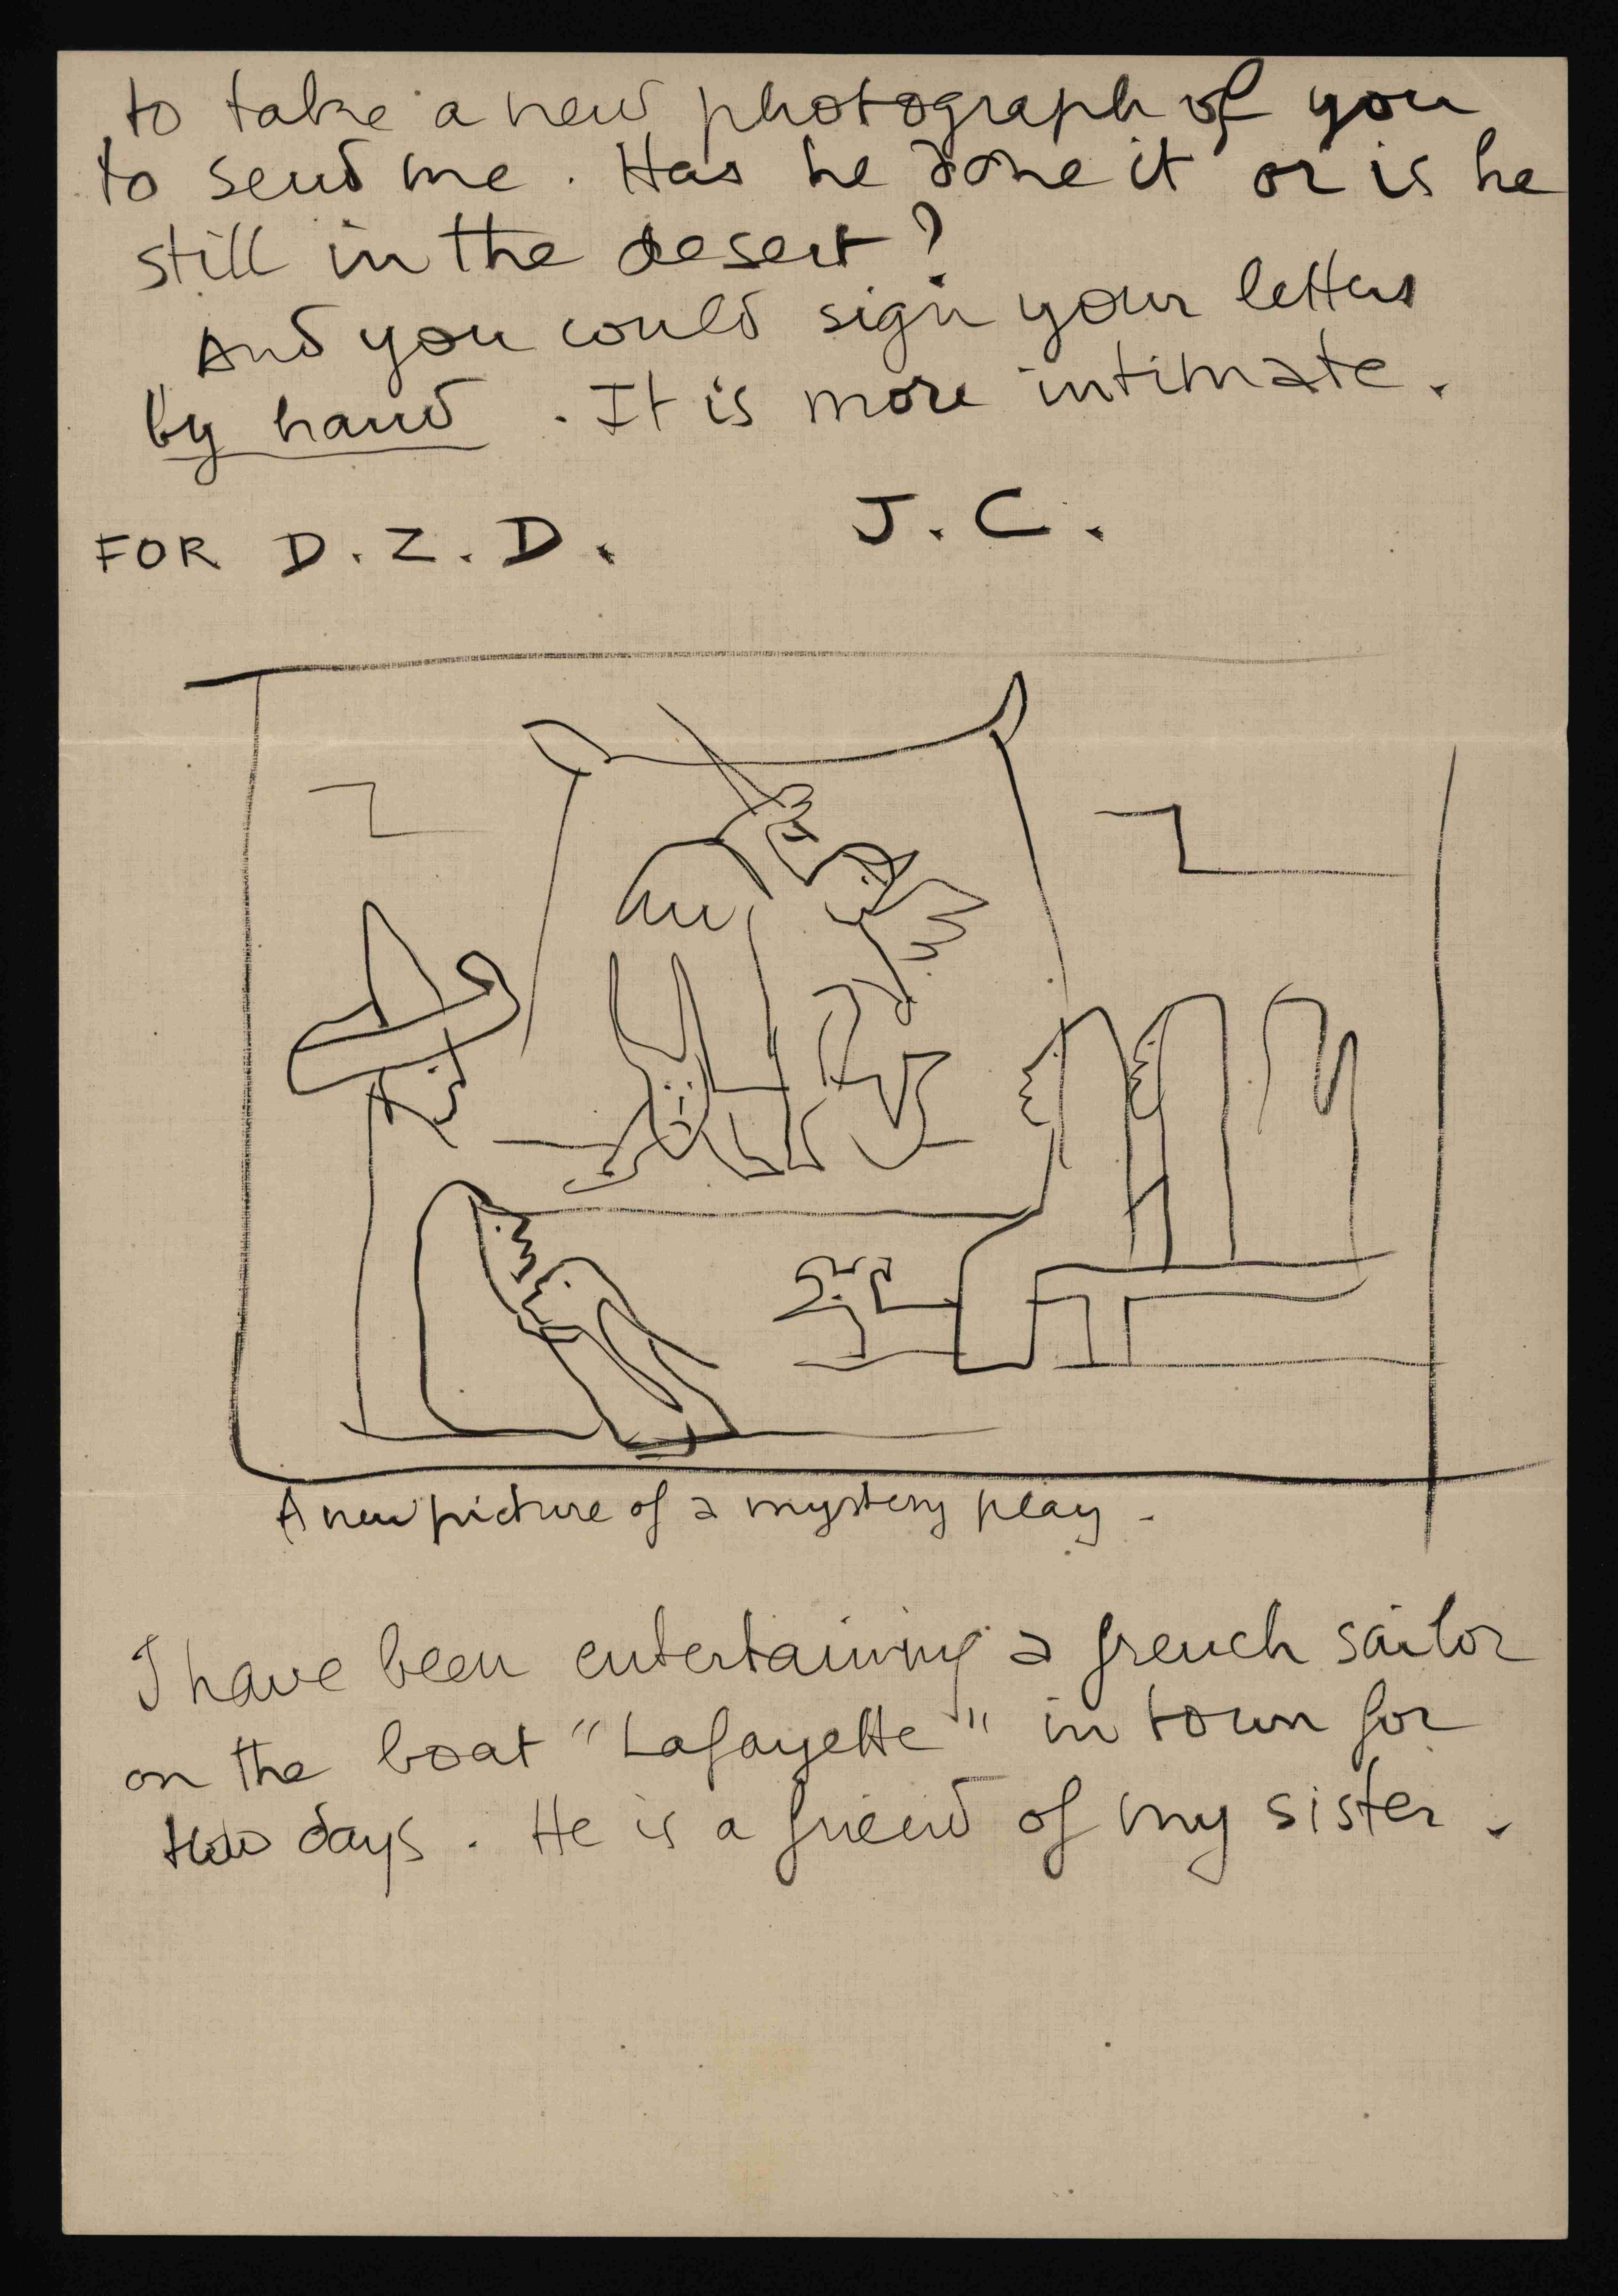 to take a new photograph of you
to send me. Has he done it or is he
still in the desert?
And you could sign your letters
by hand. It is more intimate.
J.C.
FOR D.Z.D.
A new picture of a mystery play.
I have been entertaining a french sailor
on the boat "Lafayette" in town for
two days. He is a friend of my sister.